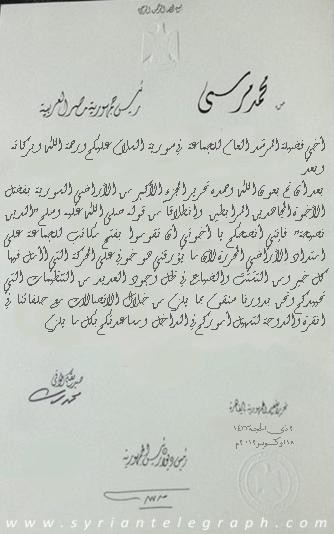 بسم الله الرحمن الرحيم
من محمد مرسى
رئيس جمهورية مصر العربية
أخي فضيلة المرشد العام للجماعة في سورية السلام عليكم ورحمة الله وبركاته
وبعد
بعد أن تم بعون الله وحمده تحرير الجزء الأكبر من الأراضي السورية بفضل
الأخوة المجاهدين المرابطين وانطلاقا من قوله صلى الله عليه وسلم "الدين
نصيحة" فإنني أنصحكم يا أخوتي أن تقوموا بفتح مكاتب للجماعة على
امتداد الأراضي المحررة لأن ما يؤرقني هو خوفي على الحركة التي أأمل فيها
كل خير من التفتت والضياع في ظل وجود العديد من التنظيمات التي
تحيط بكم ونحن بدورنا سنقوم بما يلزم من خلال الاتصالات مع حلفائنا في
أنقرة والدوحة لتسهيل أموركم في الداخل ومساعدتكم بكل ما يلزم
محمد مرسى
تحرير بقصر الجمهورية بالقاهرة
٢ ذي الحجة ١٤٣٣
١٨ أكتوبر ٢٠١٢م
رئيس ديوان رئيس الجمهورية
www.syriantelegraph.com